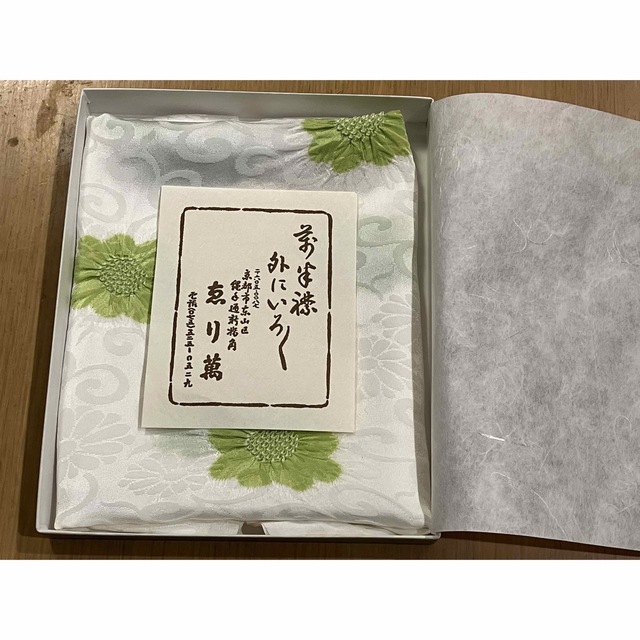 萬半襟
外にいろ〱
六〇五-〇〇八七
京都市東山区
縄手通新橋角
ゑり萬
電話(〇七五)五二五-〇五二九